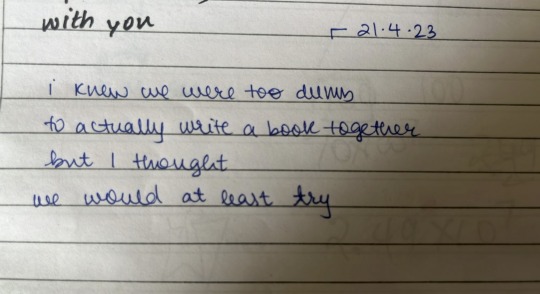 with you
21.4.23
i knew we were too dumb
to actually write a book together
but I thought
we would at least try